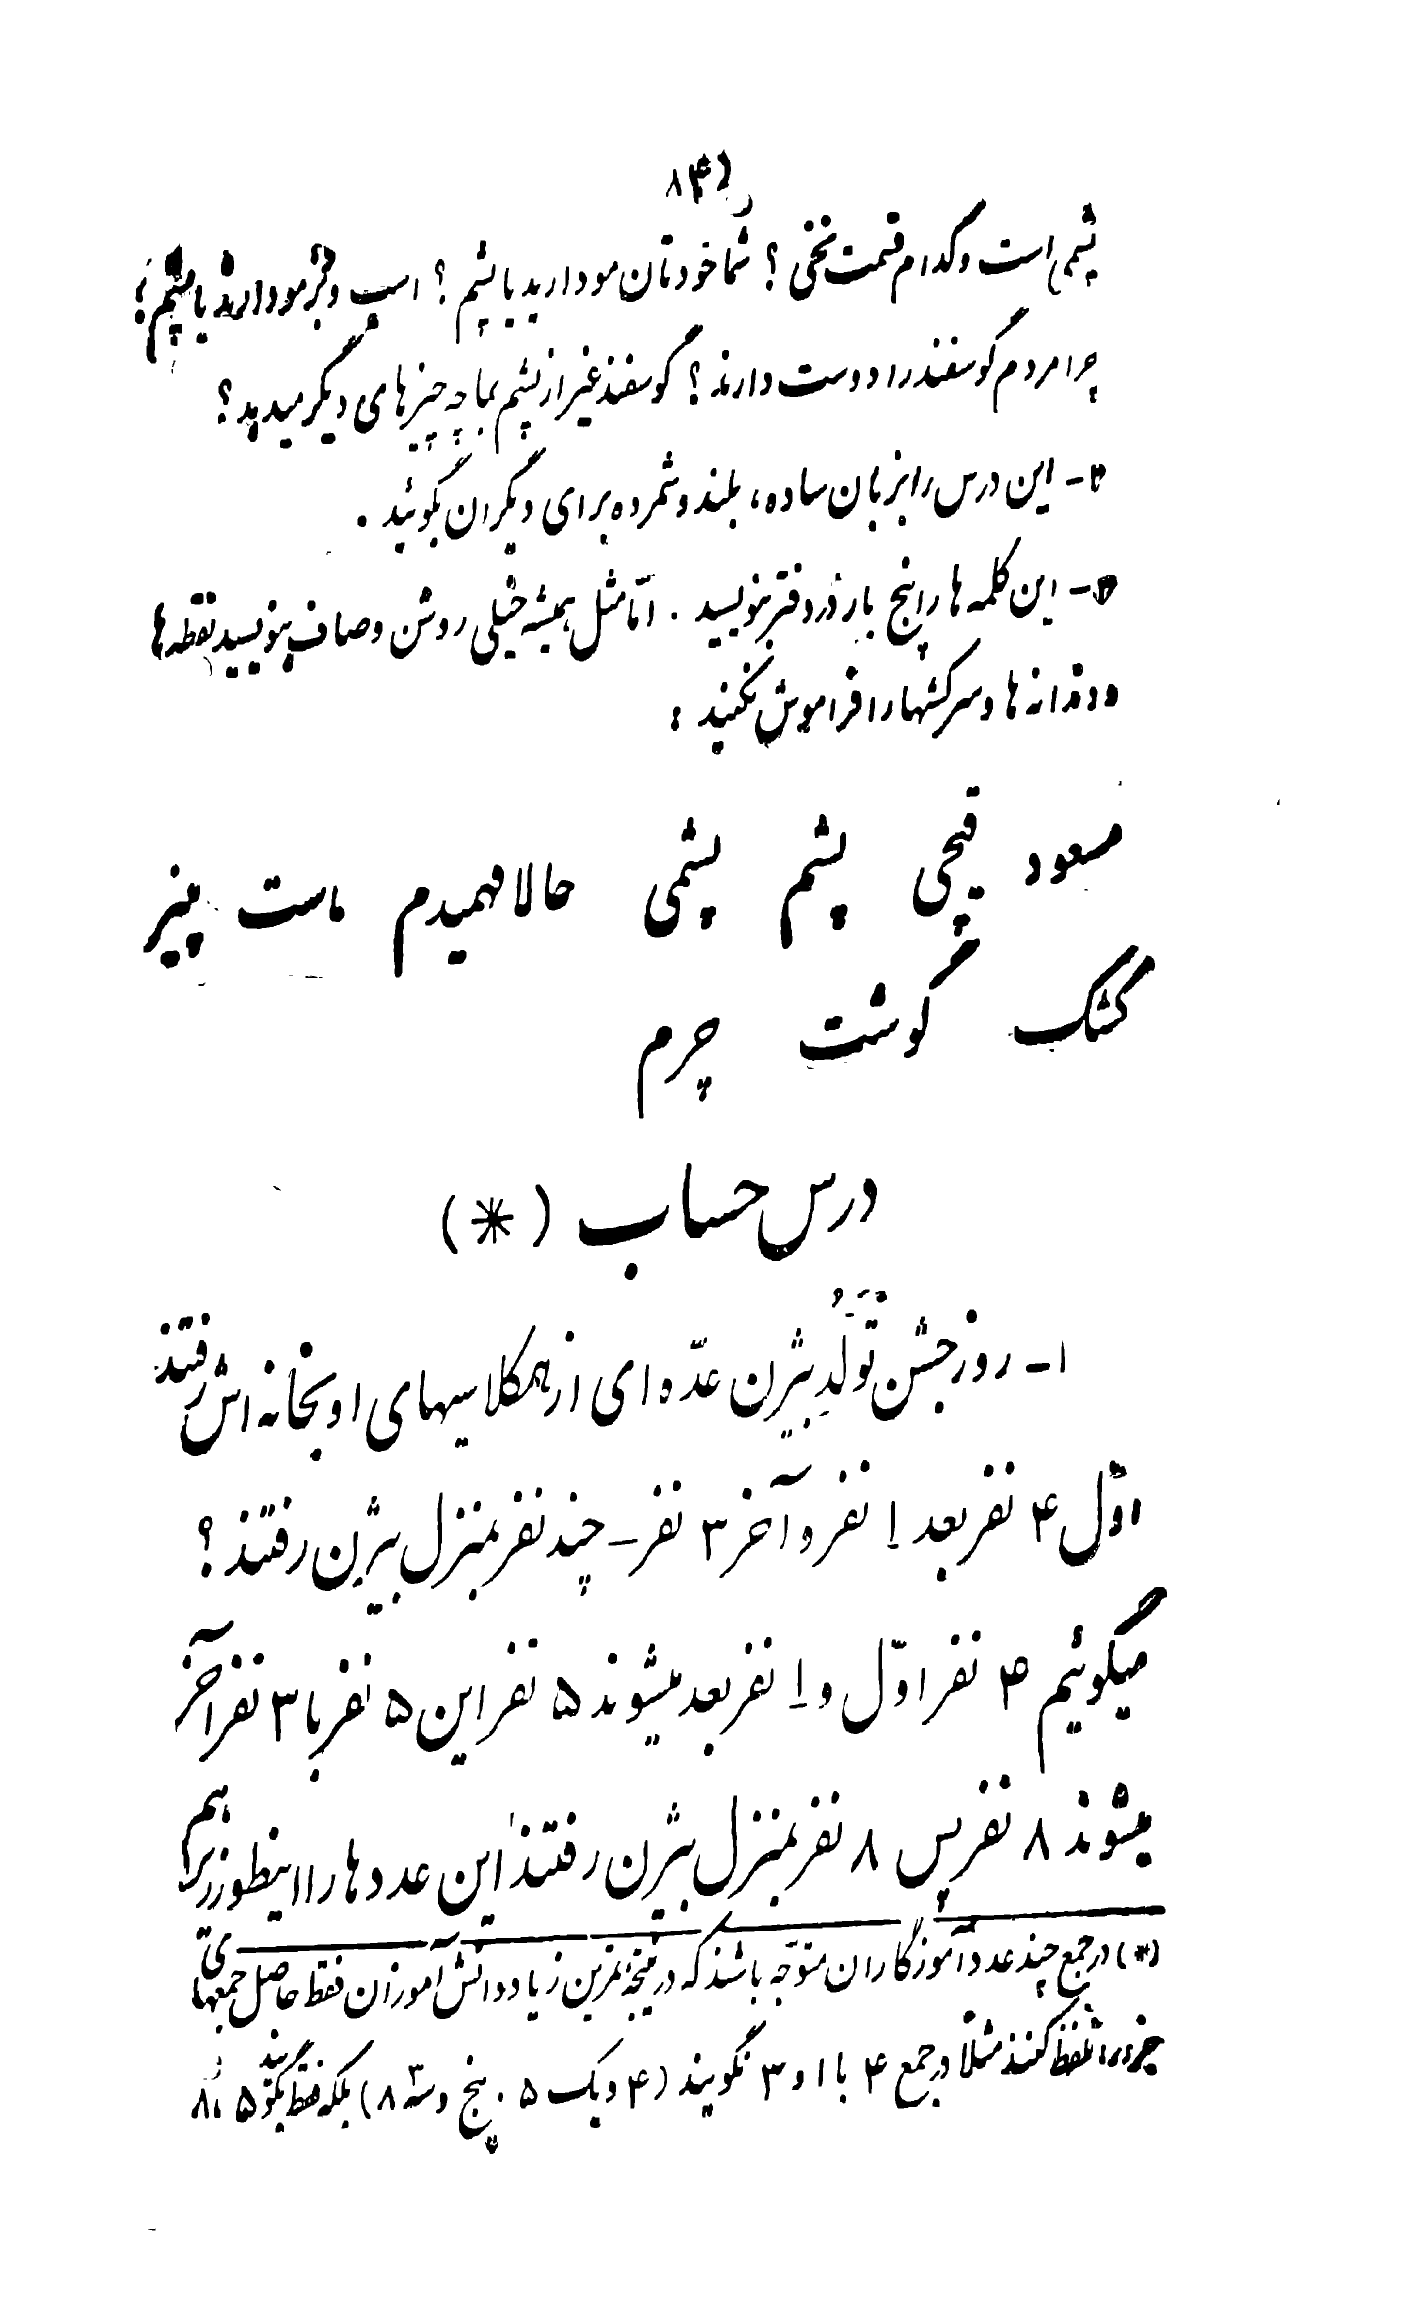 ۸۴
پشمی است و کدام قسمت نخی ؟ شما خودتان مو دارید یا پشم ؟ اسب و بز مو دارند یا پشم ؟
چرا مردم گوسفند را دوست دارند ؟ گوسفند غیر از پشم بما چه چیزهای دیگر میدهد ؟
۲- این درس را بزبان ساده، بلند و شمرده برای دیگران بگوئید .
۳- این کلمه ها را پنج بار در دفتر بنویسید . امّا مثل همیشه خیلی روشن و صاف بنویسید نقطه ها
و دندانه ها و سرکشها را فراموش نکنید :
مسعود قیچی پشم پشمی حالا فهمیدم ماست پنیر
کشک گوشت چرم
درس حساب (*)
۱- روز جشن تَوَلُّدِ بیژن عدّه ای از همکلاسیهای او بخانه اش رفتند
اوّل ۴ نفر بعد ۱ نفر و آخر ۳ نفر - چند نفر بمنزل بیژن رفتند ؟
میگوئیم ۴ نفر اوّل و ۱ نفر بعد میشوند ۵ نفر این ۵ نفر با ۳ نفر آخر
میشوند ۸ نفر پس ۸ نفر بمنزل بیژن رفتند این عددها را اینطور زیر هم
(*) در جمع چند عدد آموزگاران متوجّه باشند که در نتیجه تمرین زیاد دانش آموزان فقط حاصل جمعهای
جزء را تلفظ کنند مثلاً در جمع ۴ با ۱ و ۳ نگویند (۴ و یک ۵ . پنج و سه ۸) بلکه فقط بگویند ۵ ، ۸